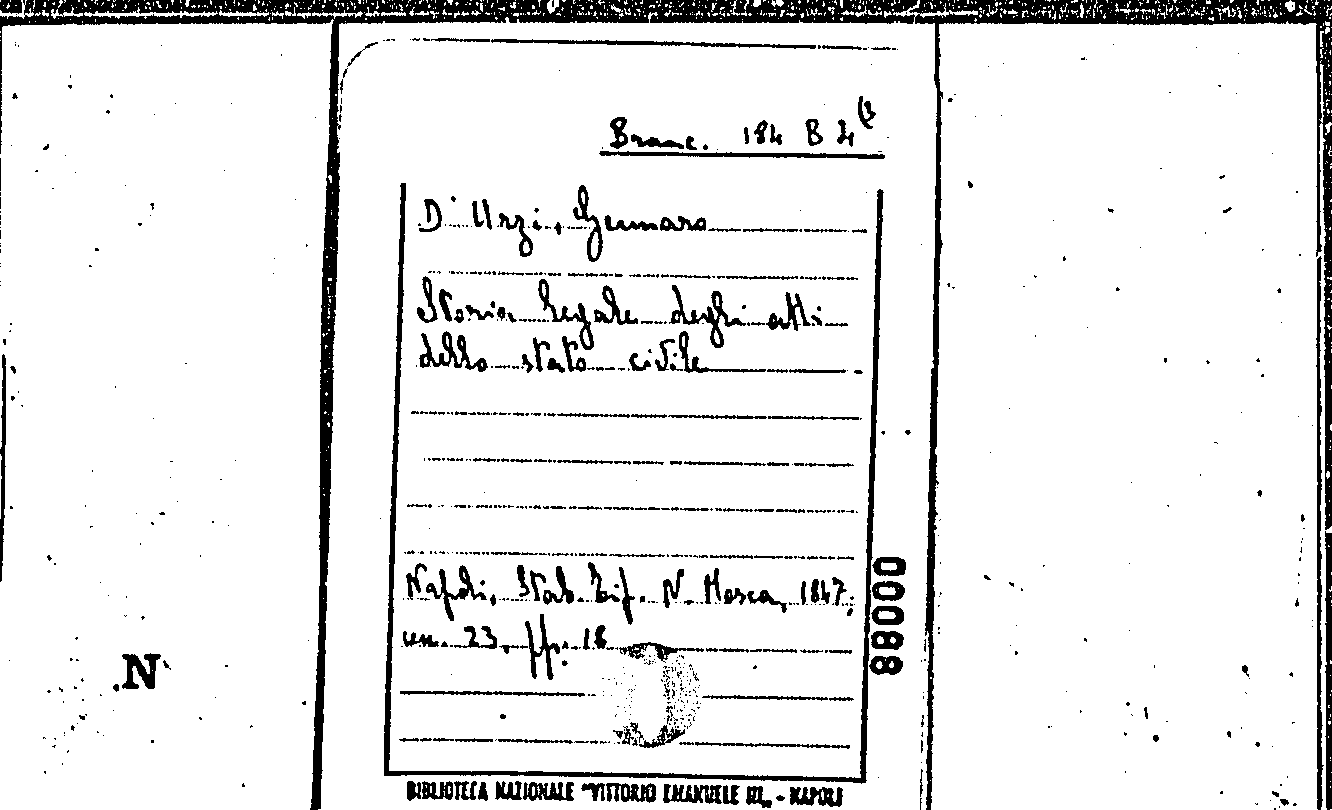 Branc. 184 B 24 (3
D'Urzi, Gennaro
Storia legale degli atti
dello stato civile
Napoli, Stab. Tip. N. Mosca, 1847;
cm. 23, pp. 18
88000
.N
BIBLIOTECA NAZIONALE "VITTORIO EMANUELE III„ - NAPOLI